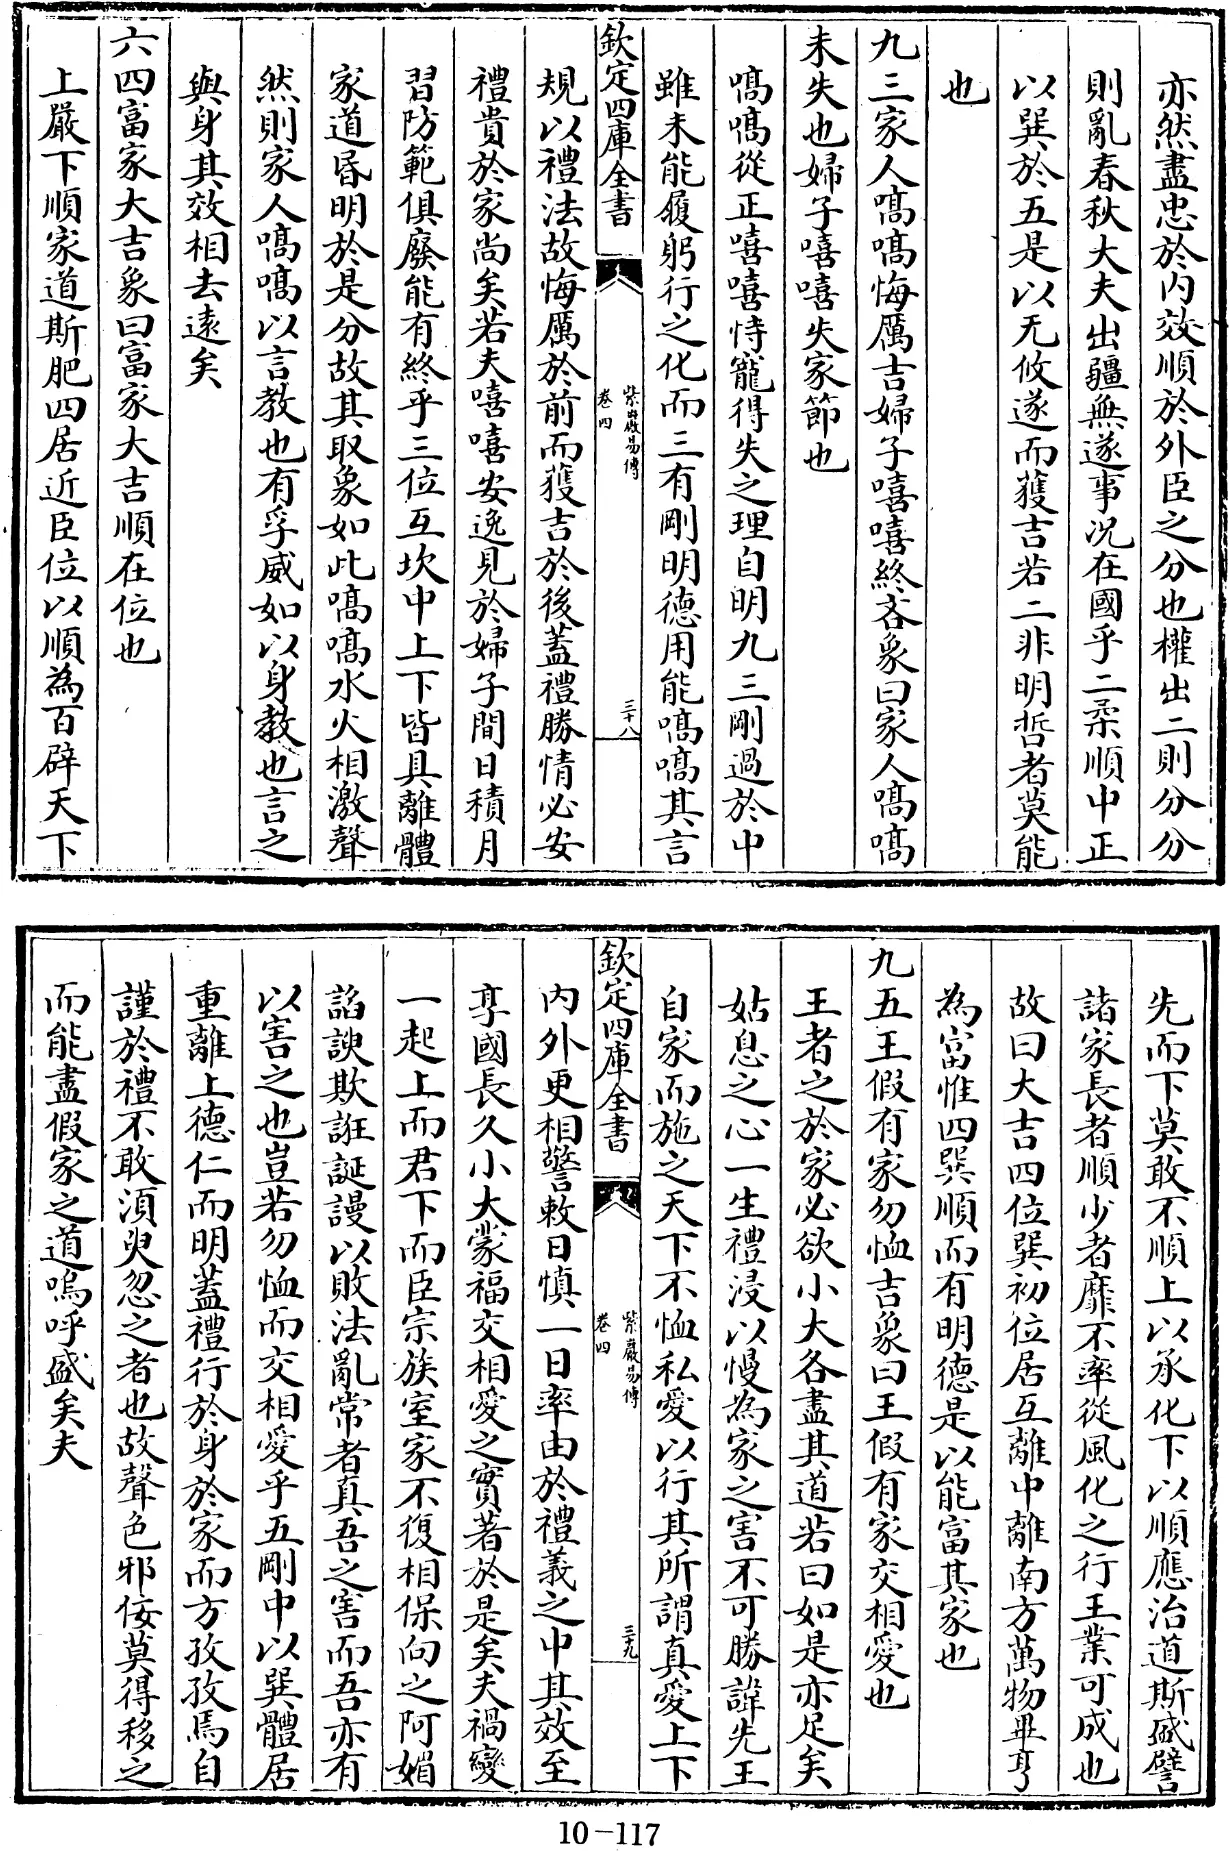 亦然盡忠於内效順於外臣之分也權出二則分分
則亂春秋大夫出疆無遂事况在國乎二柔順中正
以巽於五是以无攸遂而獲吉若二非明哲者莫能
也
九三家人嗃嗃悔厲吉婦子嘻嘻終吝象曰家人嗃嗃
未失也婦子嘻嘻失家節也
嗃嗃從正嘻嘻恃寵得失之理自明九三剛過於中
雖未能履躬行之化而三有剛明德用能嗃嗃其言
欽定四庫全書
紫巖易傳
卷四
三十八
規以禮法故悔厲於前而獲吉於後蓋禮勝情必安
禮貴於家尚矣若夫嘻嘻安逸見於婦子間日積月
習防範俱廢能有終乎三位互坎中上下皆具離體
家道昏明於是分故其取象如此嗃嗃水火相激聲
然則家人嗃嗃以言教也有孚威如以身教也言之
與身其效相去遠矣
六四富家大吉象曰富家大吉順在位也
上嚴下順家道斯肥四居近臣位以順為百辟天下
先而下莫敢不順上以承化下以順應治道斯盛譬
諸家長者順少者靡不率從風化之行王業可成也
故曰大吉四位巽初位居互離中離南方萬物畢亨
為富惟四巽順而有明德是以能富其家也
九五王假有家勿恤吉象曰王假有家交相愛也
王者之於家必欲小大各盡其道若曰如是亦足矣
姑息之心一生禮浸以慢為家之害不可勝諱先王
自家而施之天下不恤私愛以行其所謂真愛上下
欽定四庫全書
紫巖易傳
卷四
三十九
内外更相警敕日慎一日率由於禮義之中其效至
享國長久小大蒙福交相愛之實著於是矣夫禍變
一起上而君下而臣宗族室家不復相保向之阿媚
諂諛欺誑誕謾以敗法亂常者真吾之害而吾亦有
以害之也豈若勿恤而交相愛乎五剛中以巽體居
重離上德仁而明蓋禮行於身於家而方孜孜焉自
謹於禮不敢須臾忽之者也故聲色邪佞莫得移之
而能盡假家之道嗚呼盛矣夫
10-117